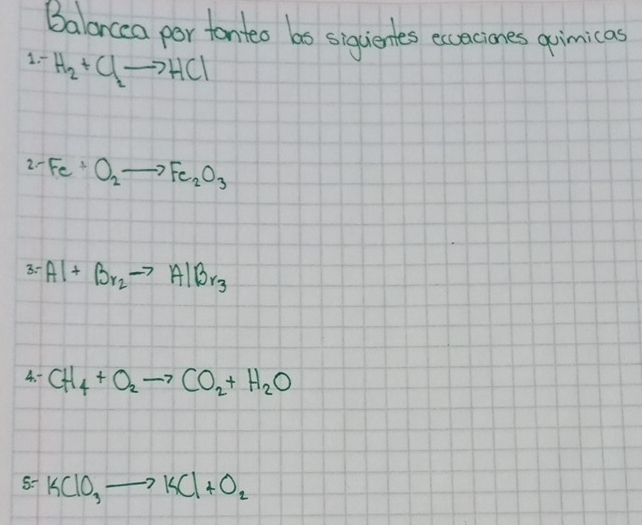 Balancea por tanteo las siguientes ecuaciones quimicas
1.- H₂ + Cl₂ → HCl
2.- Fe + O₂ → Fe₂O₃
3.- Al + Br₂ → AlBr₃
4.- CH₄ + O₂ → CO₂ + H₂O
5.- KClO₃ → KCl + O₂